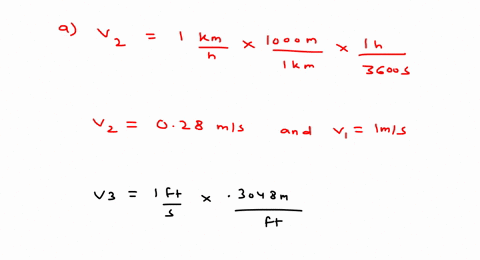 a) V₂ = 1 km/h × 1000m/1km × 1h/3600s
V₂ = 0.28 m/s and V₁ = 1m/s
V3 = 1ft/s × .3048m/ft